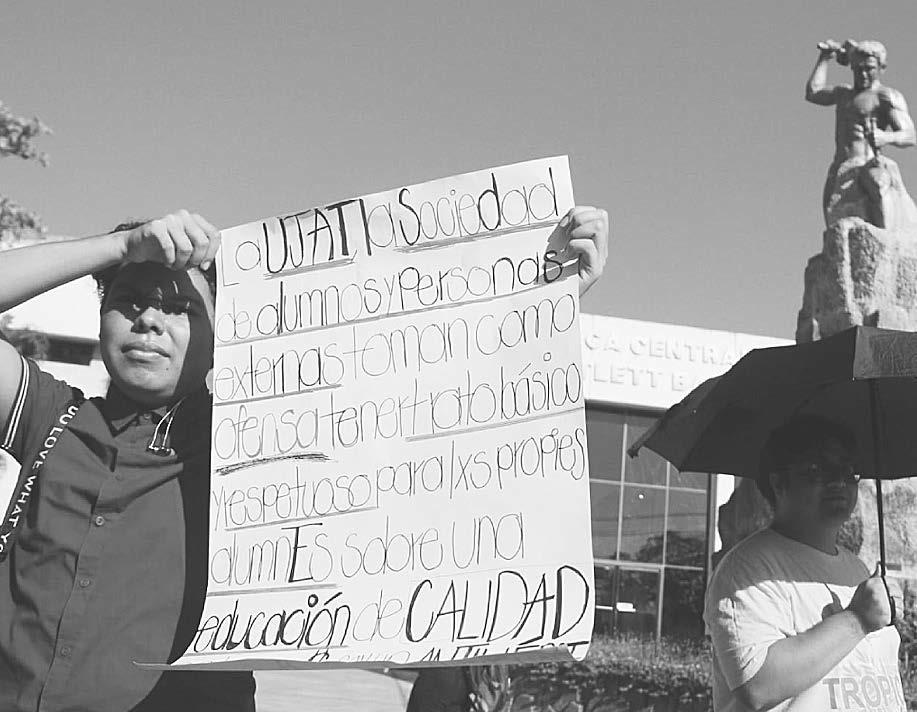 La UJAT la Sociedad
de alumnos y personas
externas toman como
ofensa tener trato básico
y respetuoso para lxs propies
alumnEs sobre una
educación de CALIDAD
CA CENTRA
TLETT B
OU LOVE WHAT YO
TROP